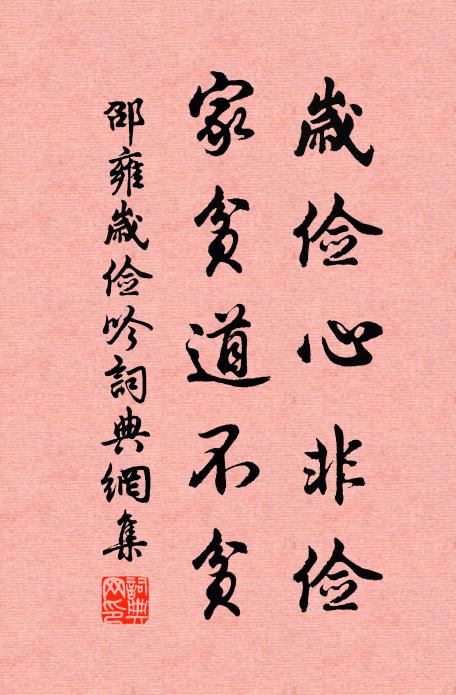 歲儉心非儉
家貧道不貧
邵雍歲儉吟詞典網集
詞典網印